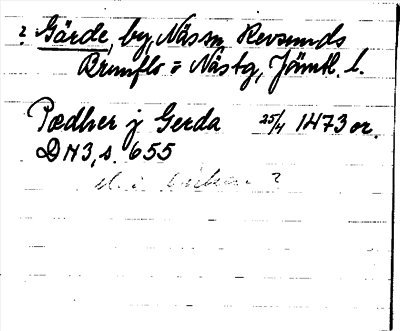 ? Gärde, by, Näs sn Revsunds
Brunflo o Näs tg, Jämtl. l.
Pædher j Gerda 25/4 1473 or.
DN 3, s. 655